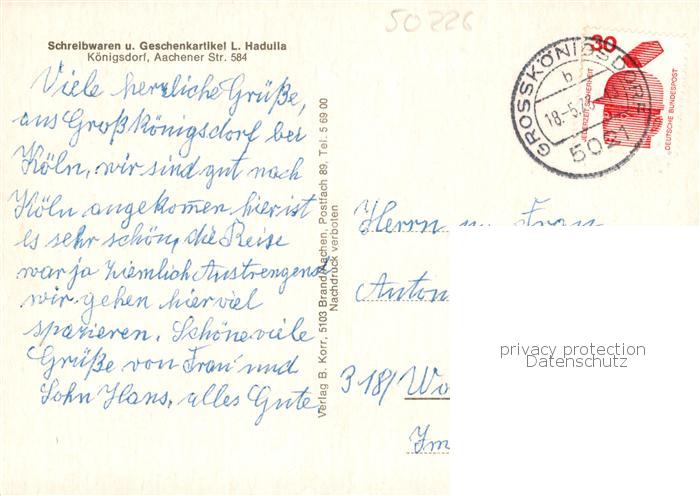 50226
Schreibwaren u. Geschenkartikel L. Hadulla
Königsdorf, Aachener Str. 584
Viele herzliche Grüße,
aus Großkönigsdorf bei
Köln, wir sind gut nach
Köln angekommen hier ist
es sehr schön, die Reise
war ja ziemlich Anstrengend
wir gehen hier viel
spazieren. Schöne viele
Grüße von Frau und
Sohn Hans, alles Gute
Verlag B. Korr, 5103 Brand/Aachen, Postfach 89, Tel.: 5 69 00
Nachdruck verboten
GROSSKÖNIGSDORF
b
18.-5.
5021
30
JEDERZEIT SICHERHEIT
DEUTSCHE BUNDESPOST
Herrn u. Frau
Anton
318/ Wo
Im
privacy protection
Datenschutz